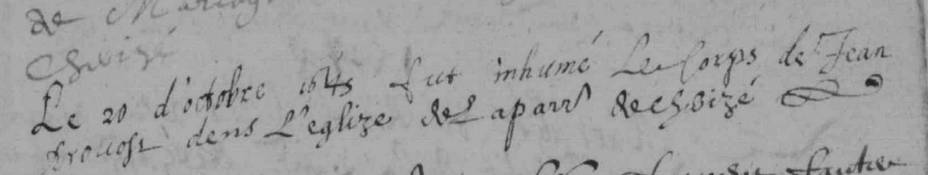 de
Choizé
Le 20 d'octobre 1645 fut inhumé Le Corps de Jean
provost dens L'eglize de L aparr de choizé